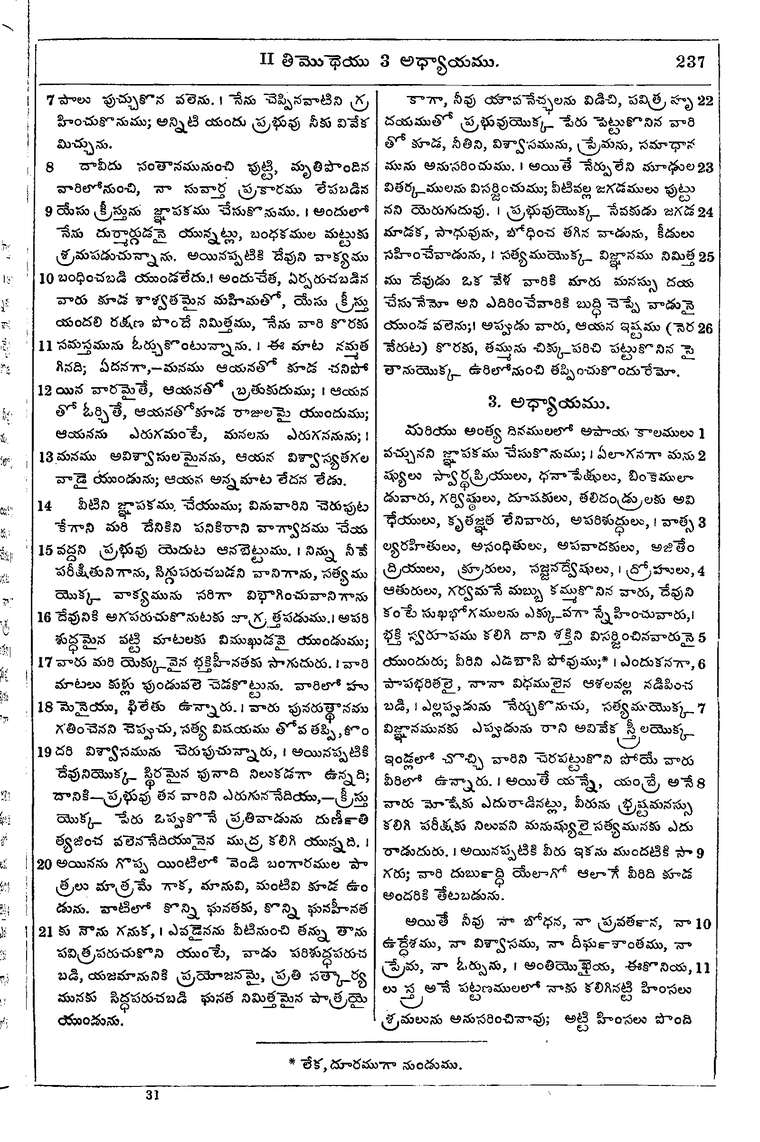 II తిమొథెయు 3 అధ్యాయము. 237
7 పాలు పుచ్చుకొన వలెను. । నేను చెప్పినవాటిని గ్ర
హించుకొనుము; అన్నిటి యందు ప్రభువు నీకు వివేక
మిచ్చును.
8 దావీదు సంతానమునుంచి పుట్టి, మృతిపొందిన
వారిలోనుంచి, నా సువార్త ప్రకారము లేపబడిన
9 యేసు క్రీస్తును జ్ఞాపకము చేసుకొనుము. । అందులో
నేను దుర్మార్గుడనై యున్నట్లు, బంధకముల మట్టుకు
శ్రమపడుచున్నాను. అయినప్పటికి దేవుని వాక్యము
10 బంధించబడి యుండలేదు. । అందుచేత, ఏర్పరుచబడిన
వారు కూడ శాశ్వతమైన మహిమతో, యేసు క్రీస్తు
యందలి రక్షణ పొందే నిమిత్తము, నేను వారి కొరకు
11 సమస్తమును ఓర్చుకొంటున్నాను. । ఈ మాట నమ్మత
గినది; ఏదనగా,—మనము ఆయనతో కూడ చనిపో
12 యిన వారమైతే, ఆయనతో బ్రతుకుదుము; । ఆయన
తో ఓర్చితే, ఆయనతోకూడ రాజులమై యుందుము;
ఆయనను ఎరుగమంటే, మనలను ఎరుగననును; ।
13 మనము అవిశ్వాసులమైనను, ఆయన విశ్వాస్యతగల
వాడై యుండును; ఆయన అన్నమాట లేదన లేడు.
14 వీటిని జ్ఞాపకము చేయుము; వినువారిని చెరుపుట
కేగాని మరి దేనికిని పనికిరాని వాగ్వాదము చేయ
15 వద్దని ప్రభువు యెదుట ఆనబెట్టుము. । నిన్ను నీవే
పరీక్షితునిగాను, సిగ్గుపరుచబడని వానిగాను, సత్యము
యొక్క వాక్యమును సరిగా విభాగించువానిగాను
16 దేవునికి అగపరుచుకొనుటకు జాగ్రత్తపడుము. । అపరి
శుద్ధమైన వట్టి మాటలకు విముఖుడవై యుండుము;
17 వారు మరి యెక్కువైన భక్తిహీనతకు సాగుదురు. । వారి
మాటలు కుళ్లు పుండువలె చెడకొట్టును. వారిలో హు
18 మెనైయు, ఫిలేతు ఉన్నారు. । వారు పునరుత్థానము
గతించెనని చెప్పుచు, సత్య విషయము తోవ తప్పి, కొం
19 దరి విశ్వాసమును చెరుపుచున్నారు, । అయినప్పటికి
దేవునియొక్క స్థిరమైన పునాది నిలుకడగా ఉన్నది;
దానికి—ప్రభువు తన వారిని ఎరుగుననేదియు,—క్రీస్తు
యొక్క పేరు ఒప్పుకొనే ప్రతివాడును దుర్ణీతి
త్యజించ వలెననేదియునైన ముద్ర కలిగి యున్నది. ।
20 అయినను గొప్ప యింటిలో వెండి బంగారముల పా
త్రలు మాత్రమే గాక, మానువి, మంటివి కూడ ఉం
డును. వాటిలో కొన్ని ఘనతకు, కొన్ని ఘనహీనత
21 కు నౌను గనుక, । ఎవడైనను వీటినుంచి తన్ను తాను
పవిత్రపరుచుకొని యుంటే, వాడు పరిశుద్ధపరుచ
బడి, యజమానునికి ప్రయోజనమై, ప్రతి సత్కార్య
మునకు సిద్ధపరుచబడి ఘనత నిమిత్తమైన పాత్రయై
యుండును.
కాగా, నీవు యౌవనేచ్ఛలను విడిచి, పవిత్ర హృ 22
దయముతో ప్రభువుయొక్క పేరు పెట్టుకొనిన వారి
తో కూడ, నీతిని, విశ్వాసమును, ప్రేమను, సమాధాన
మును అనుసరించుము. । అయితే నేర్పులేని మూఢుల 23
వితర్కములను విసర్జించుము; వీటివల్ల జగడములు పుట్టు
నని యెరుగుదువు. । ప్రభువుయొక్క సేవకుడు జగడ 24
మాడక, సాధువును, బోధించ తగిన వాడును, కీడులు
సహించేవాడును, । సత్యముయొక్క విజ్ఞానము నిమిత్త 25
ము దేవుడు ఒక వేళ వారికి మారు మనస్సు దయ
చేసునేమో అని ఎదిరించేవారికి బుద్ధి చెప్పే వాడునై
యుండ వలెను; । అప్పుడు వారు, ఆయన ఇష్టము (నెర 26
వేరుట) కొరకు, తమ్మును చిక్కపరిచి పట్టుకొనిన సై
తానుయొక్క ఉరిలోనుంచి తప్పించుకొందురేమో.
3. అధ్యాయము.
మరియు అంత్య దినములలో అపాయ కాలములు 1
వచ్చునని జ్ఞాపకము చేసుకొనుము; । ఏలాగనగా మను 2
ష్యులు స్వార్థప్రియులు, ధనాపేక్షులు, బింకములా
డువారు, గర్విష్ఠులు, దూషకులు, తలిదండ్రులకు అవి
ధేయులు, కృతజ్ఞత లేనివారు, అపరిశుద్ధులు, । వాత్స 3
ల్యరహితులు, అసంధితులు, అపవాదకులు, అజితేం
ద్రియులు, క్రూరులు, సజ్జనద్వేషులు, । ద్రోహులు, 4
ఆతురులు, గర్వమనే మబ్బు కమ్ముకొనిన వారు, దేవుని
కంటే సుఖభోగములను ఎక్కువగా స్నేహించువారు, ।
భక్తి స్వరూపము కలిగి దాని శక్తిని విసర్జించినవారునై 5
యుందురు; వీరిని ఎడబాసి పోవుము;* । ఎందుకనగా, 6
పాపభరితలై, నానా విధములైన ఆశలవల్ల నడిపించ
బడి, । ఎల్లప్పుడును నేర్చుకొనుచు, సత్యముయొక్క 7
విజ్ఞానమునకు ఎప్పుడును రాని అవివేక స్త్రీలయొక్క
ఇండ్లలో చొచ్చి వారిని చెరపట్టుకొని పోయే వారు
వీరిలో ఉన్నారు. । అయితే యన్నే, యంబ్రే అనే 8
వారు మోషేకు ఎదురాడినట్లు, వీరును భ్రష్టమనస్సు
కలిగి పరీక్షకు నిలువని మనుష్యులై సత్యమునకు ఎదు
రాడుదురు. । అయినప్పటికి వీరు ఇకను ముందటికి సా 9
గరు; వారి దుర్బుద్ధి యేలాగో ఆలాగే వీరిది కూడ
అందరికి తేటబడును.
అయితే నీవు నా బోధన, నా ప్రవర్తన, నా 10
ఉద్దేశము, నా విశ్వాసము, నా దీర్ఘశాంతము, నా
ప్రేమ, నా ఓర్పును, । అంతియొఖైయ, ఈకొనియ, 11
లు స్త్ర అనే పట్టణములలో నాకు కలిగినట్టి హింసలు
శ్రమలును అనుసరించినావు; అట్టి హింసలు పొంది
* లేక, దూరముగా నుండుము.
31